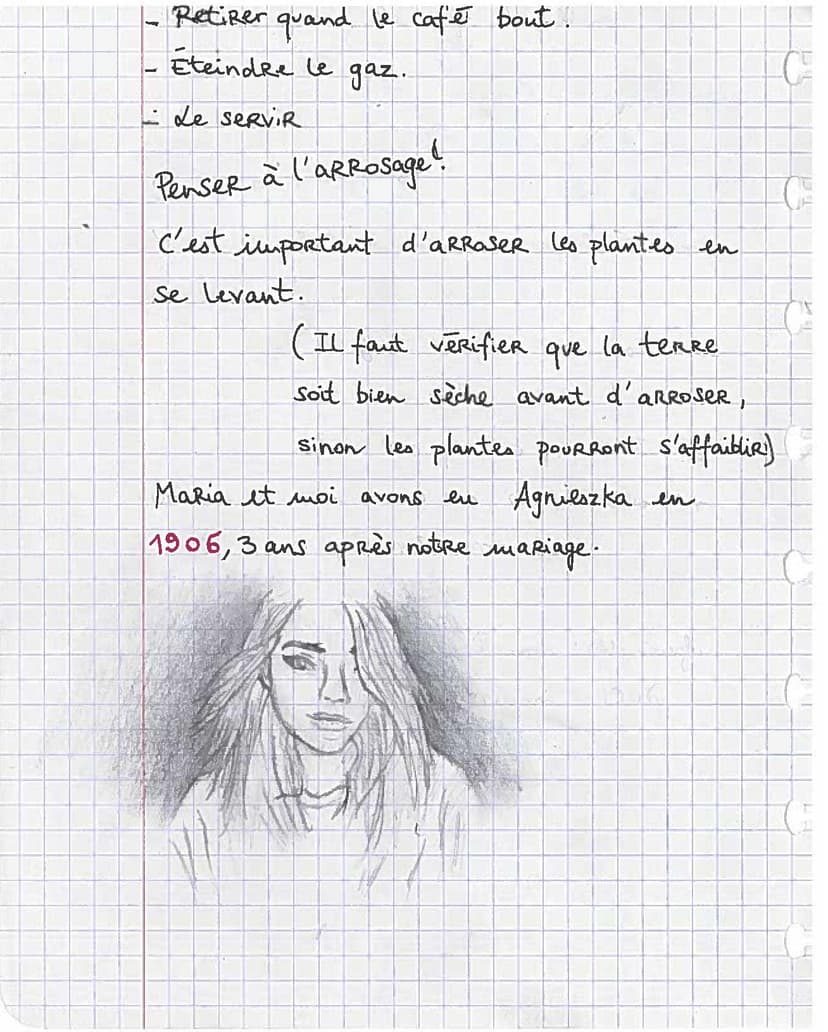 - Retirer quand le café bout.
- Éteindre le gaz.
- Le servir
Penser à l'arrosage !
C'est important d'arroser les plantes en
se levant.
(Il faut vérifier que la terre
soit bien sèche avant d'arroser,
sinon les plantes pourront s'affaiblir)
Maria et moi avons eu Agnieszka en
1906, 3 ans après notre mariage.